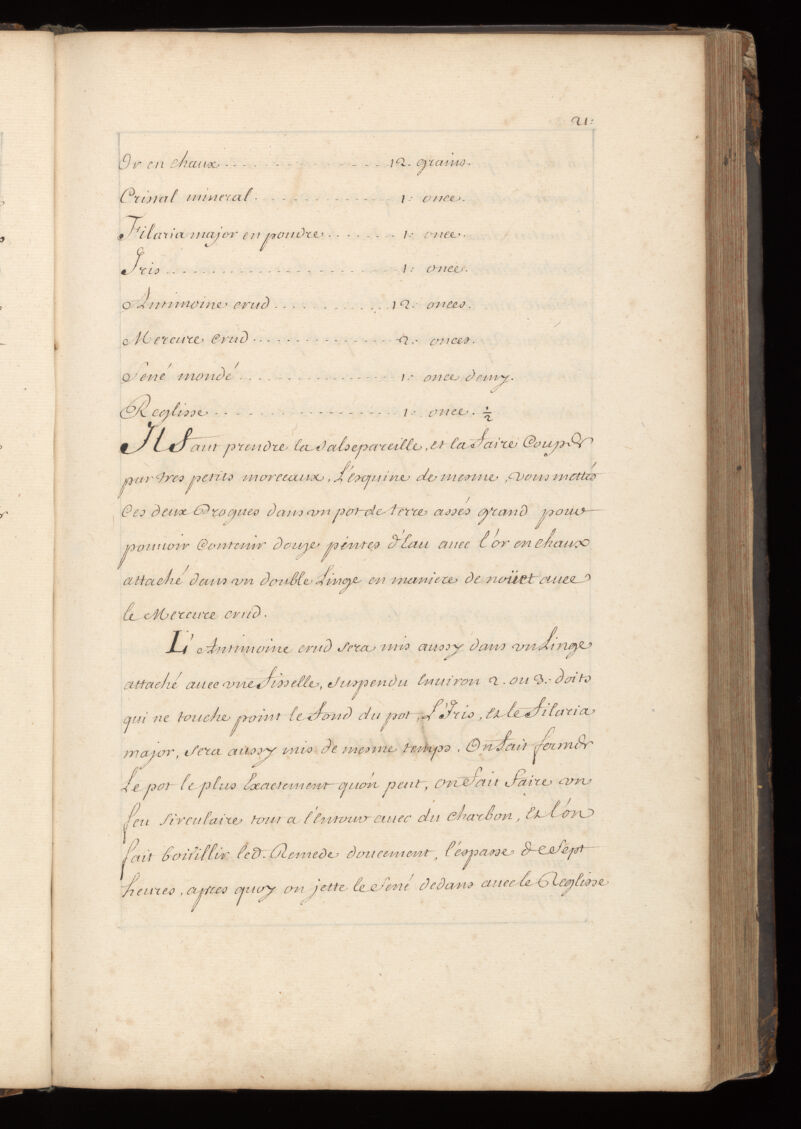 21:
Or en chaux - - - - - - - - - - - - - - 12. grains.
Cristal mineral - - - - - - - - - - - - 1: once.
Filaria major en poudre - - - - - - - 1: once.
Iris - - - - - - - - - - - - - - - - - - - - 1: once.
Antimoine crud - - - - - - - - - - - 12: onces.
Mercure Crud - - - - - - - - - - - - - 2: onces.
Sené mondé - - - - - - - - - - - - - - 1: once demy.
Reglisse - - - - - - - - - - - - - - - - - 1: once. ½
Il Faut prendre la Salsepareille, et la Faire Couper
par tres petits morceaux, L'esquine de mesme, Vous mettés
Ces deux Drogues dans vn pot de terre assés grand pour
pouuoir Contenir douze peintes d'Eau auec l'or en chaux
attaché dans vn double Linge en maniere de noüet auec
le Mercure crud.
L'Antimoine crud Sera mis aussy dans vn Linge
attaché auec vne Fisselle, Suspendu Enuiron 2. ou 3: doits
qui ne touche point le Fond du pot, L'Iris, Et le Filaria
major, Sera aussy mis de mesme temps. On Fait fermer
Le pot le plus Exactement quon peut, on Fait Faire vn
feu Sirculaire tout a l'Entour auec du charbon, Et l'on
fait boüillir led. Remede doucement, l'espasse de Sept
heures, apres quoy on jette le Sené dedans auec le Reglisse